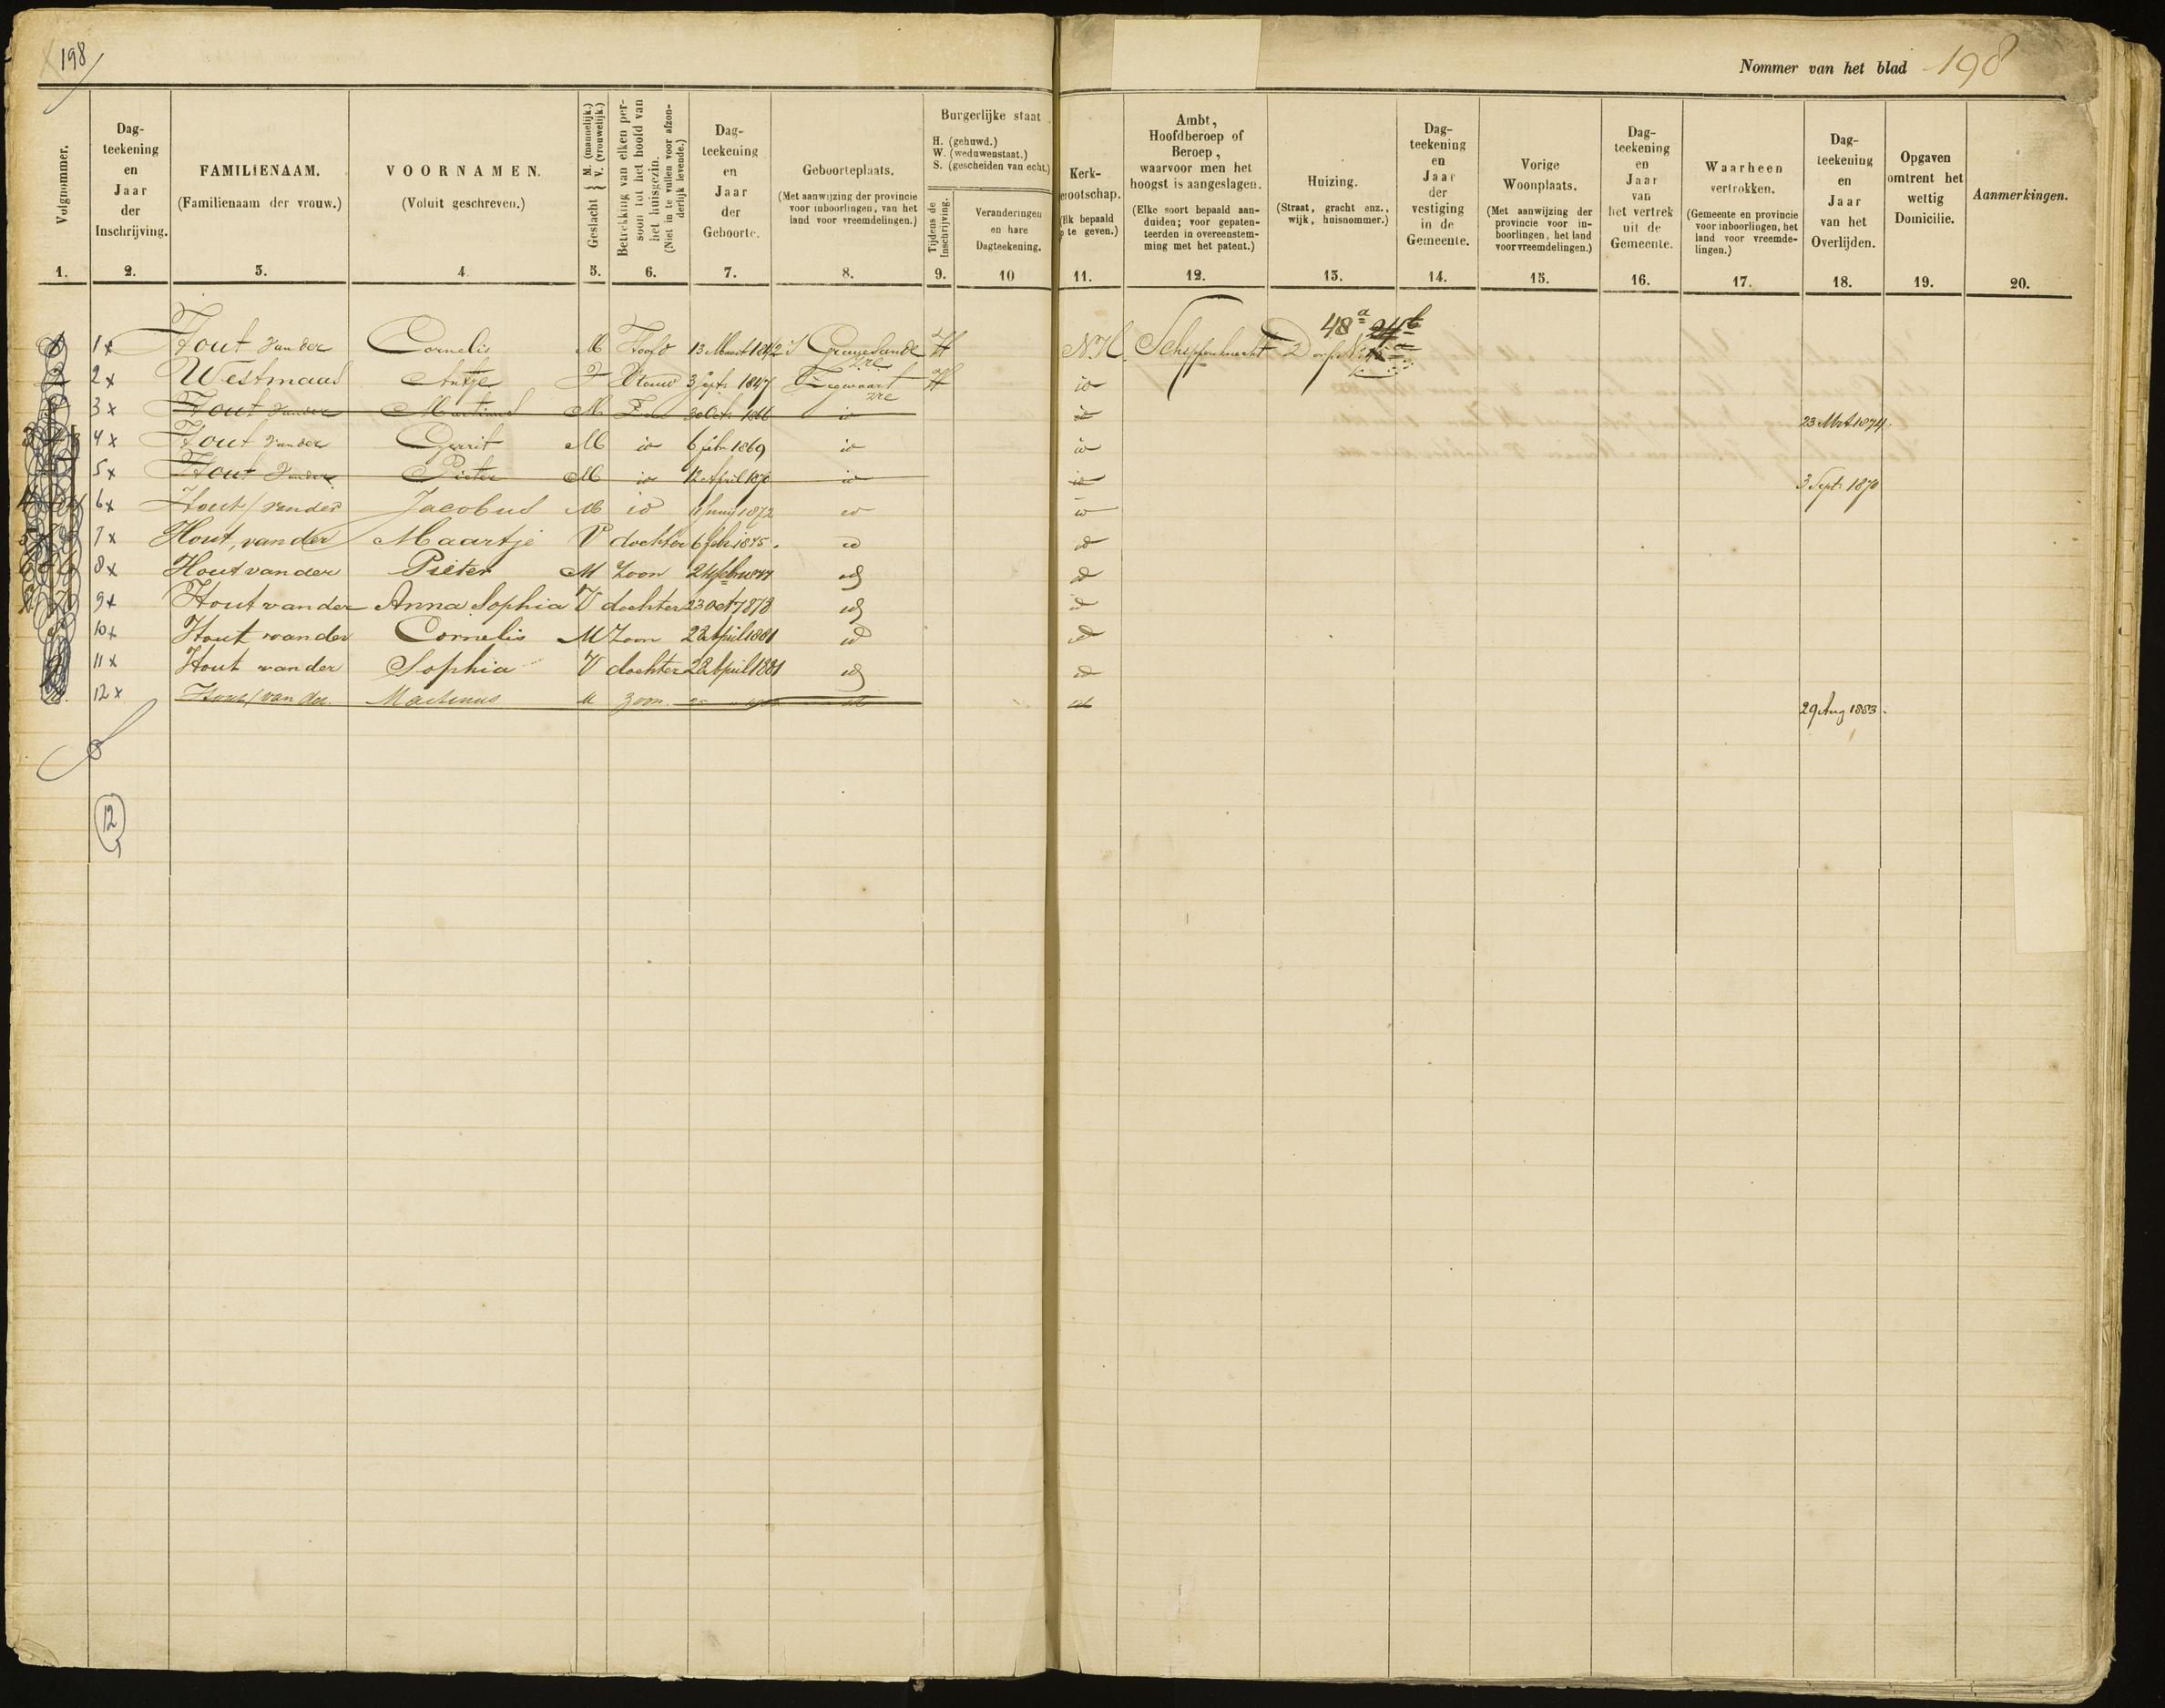 198
Nommer van het blad 198
Volgnommer.
1.
Dag-
teekening
en
Jaar
der
Inschrijving.
2.
FAMILIENAAM.
(Familienaam der vrouw.)
3.
VOORNAMEN.
(Voluit geschreven.)
4
Geslacht { M. (mannelijk.) V. (vrouwelijk)
5.
Betrekking van elken per-
soon tot het hoofd van
het huisgezin.
(Niet in te vullen voor afzon-
derlijk levende.)
6.
Dag-
teekening
en
Jaar
der
Geboorte.
7.
Geboorteplaats.
(Met aanwijzing der provincie
voor inboorlingen, van het
land voor vreemdelingen.)
8.
Burgerlijke staat
H. (gehuwd.)
W. (weduwenstaat.)
S. (gescheiden van echt.)
Tijdens de
Inschrijving.
9.
Veranderingen
en hare
Dagteekening.
10
Kerk-
nootschap.
te geven.)
11.
Ambt,
Hoofdberoep of
Beroep,
waarvoor men het
hoogst is aangeslagen.
(Elke soort bepaald aan-
duiden; voor gepaten-
teerden in overeenstem-
ming met het patent.)
12.
Huizing.
(Straat, gracht enz.,
wijk, huisnommer.)
13.
Dag-
teekening
en
Jaar
der
vestiging
in de
Gemeente.
14.
Vorige
Woonplaats.
(Met aanwijzing der
provincie voor in-
boorlingen, het land
voor vreemdelingen.)
15.
Dag-
teekening
en
Jaar
van
het vertrek
uit de
Gemeente.
16.
Waarheen
vertrokken.
(Gemeente en provincie
voor inboorlingen, het
land voor vreemde-
lingen.)
17.
Dag-
teekening
en
Jaar
van het
Overlijden.
18.
Opgaven
omtrent het
wettig
Domicilie.
19.
Aanmerkingen.
20.
1x Hout van der Cornelis M Hoofd 13 Maart 1842 's Gravesande H NH Schippersknecht Dorp 48a
2x Westmaas Antje Vrouw 3 Sept 1847 Zegwaart H io
3x Hout van der Martinus M 30 Oct 1866 io io 23 Mrt 1874.
4x Hout van der Gerrit M io 6 febr 1869 io io
5x Hout van der Pieter M io 12 April 1870 io io 3 Sept 1870
6x Hout van der Jacobus M io Junij 1872 io io
7x Hout, van der Maartje V dochter 6 feb. 1875. id id
8x Hout van der Pieter M Zoon id id
9x Hout van der Anna Sophia V dochter 23 Oct 1878 id id
10x Hout van der Cornelis M Zoon 22 April 1881 id id
11x Hout van der Sophia V dochter 22 April 1881 id id
12x Hout, van der. Martinus M zoon id id 29 Aug 1883.
12